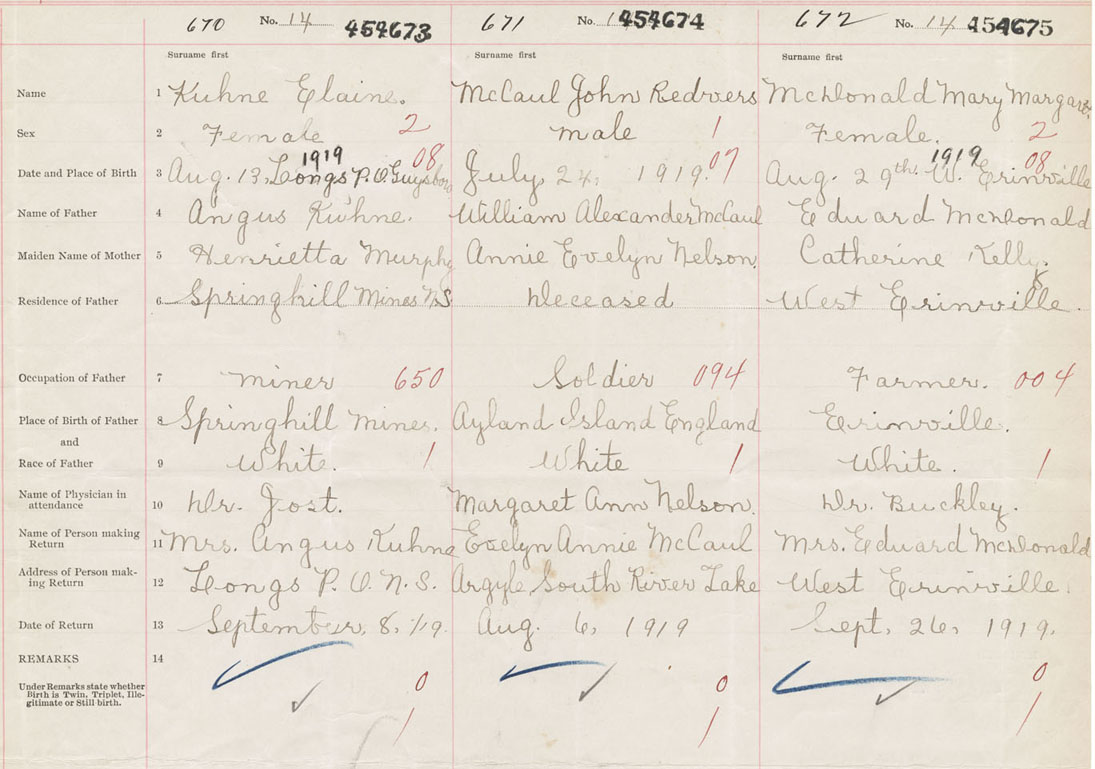 670 No. 14 454673 671 No. 1 454674 672 No. 14 454675
Surname first Surname first Surname first
Name 1 Kuhne Elaine. McCaul John Redvers McDonald Mary Margaret
Sex 2 Female 2 male 1 Female. 2
1919 08 07 1919 08
Date and Place of Birth 3 Aug. 13, Longs P.O. Guysboro July 24, 1919. Aug. 29th. W. Erinville
Name of Father 4 Angus Kuhne. William Alexander McCaul Eduard McDonald
Maiden Name of Mother 5 Henrietta Murphy Annie Evelyn Nelson. Catherine Kelly.
Residence of Father 6 Springhill Mines N.S Deceased West Erinville.
Occupation of Father 7 miner 650 Soldier 094 Farmer. 004
Place of Birth of Father 8 Springhill Mines. Ayland Island England Erinville.
and
Race of Father 9 White. 1 White 1 White. 1
Name of Physician in
attendance 10 Dr. Jost. Margaret Ann Nelson. Dr. Buckley.
Name of Person making
Return 11 Mrs. Angus Kuhne Evelyn Annie McCaul Mrs. Eduard McDonald
Address of Person mak-
ing Return 12 Longs P.O. N.S. Argyle, South River Lake West Erinville.
Date of Return 13 September, 8, /19. Aug. 6, 1919 Sept. 26, 1919.
REMARKS 14
Under Remarks state whether 0 0 0
Birth is Twin, Triplet, Ille-
gitimate or Still birth. 1 1 1